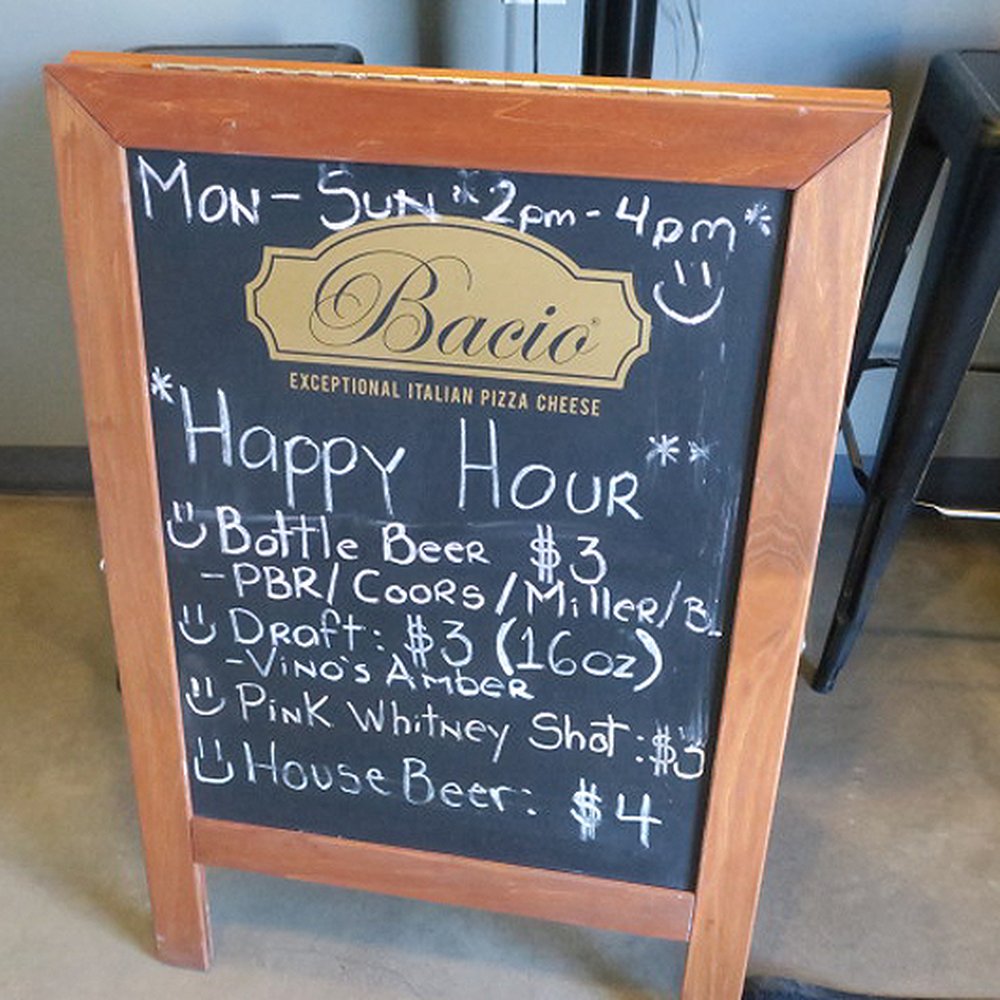 Mon - Sun *2pm - 4pm*
Bacio
EXCEPTIONAL ITALIAN PIZZA CHEESE
*Happy Hour**
Bottle Beer $3
-PBR/Coors/Miller/BL
Draft: $3 (16oz)
-Vino's Amber
Pink Whitney Shot: $3
House Beer: $4